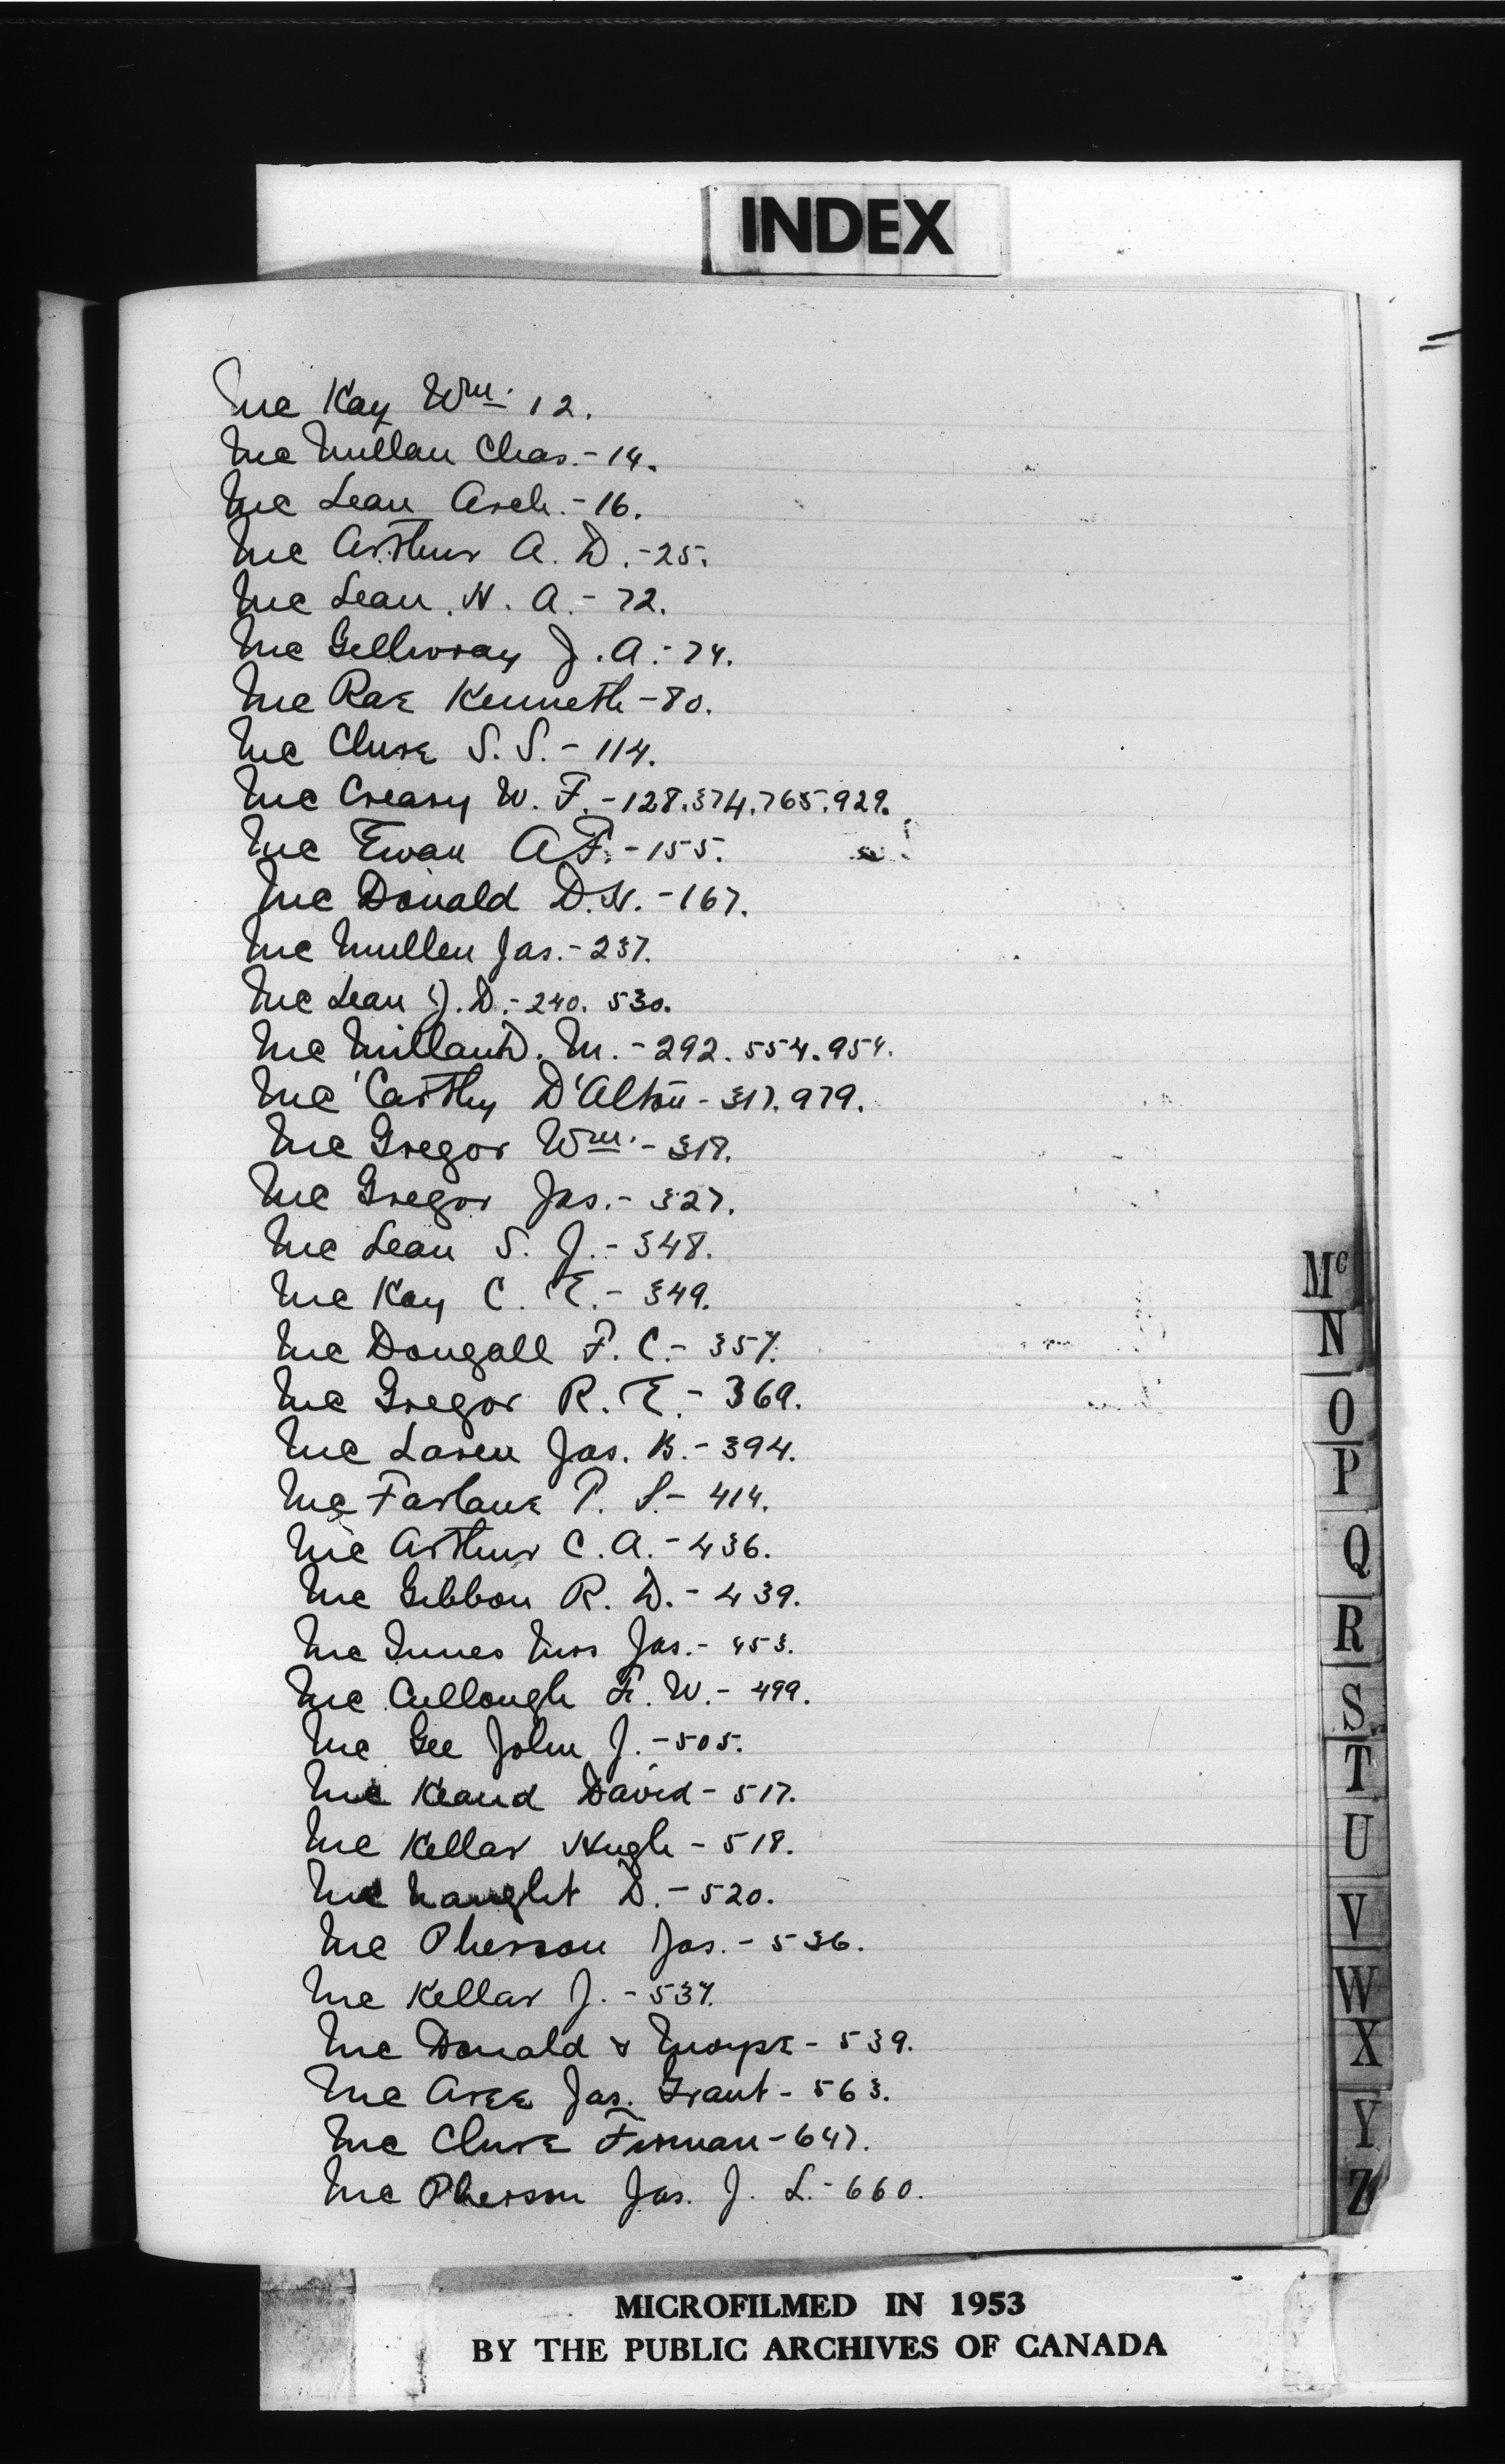 INDEX
Mc Kay Wm. 12.
Mc Millan Chas.-14.
Mc Lean Arch.-16.
Mc Arthur A. D.-25.
Mc Lean H. A.-72.
Mc Gillivray J. A.-74.
Mc Rae Kenneth-80.
Mc Clure S. S.-114.
Mc Creary W. F.-128.374.765.929.
Mc Ewan A F.-155.
Mc Donald D. H.-167.
Mc Mullen Jas.-237.
Mc Lean J. D.-240. 530.
Mc Millan D. M.-292. 554. 954.
Mc Carthy D'Alton-317. 979.
Mc Gregor Wm.-318.
Mc Gregor Jas.-327.
Mc Lean S. J.-348.
Mc Kay C. E.-349.
Mc Dougall F. C.-357.
Mc Gregor R. E.-369.
Mc Laren Jas. B.-394.
Mc Farlane P. S.-414.
Mc Arthur C. A.-436.
Mc Gibbon R. D.-439.
Mc Innes Mrs Jas.-453.
Mc Cullough F. W.-499.
Mc Gee John J.-505.
Mc Keand David-517.
Mc Kellar Hugh-518.
Mc Naught D.-520.
Mc Pherson Jas.-536.
Mc Kellar J.-537.
Mc Donald & -539.
Mc Aree Jas. Grant-563.
Mc Clure Firman-647.
Mc Pherson Jas. J. L.-660.
Mc
N
O
P
Q
R
S
T
U
V
W
X
Y
Z
MICROFILMED IN 1953
BY THE PUBLIC ARCHIVES OF CANADA